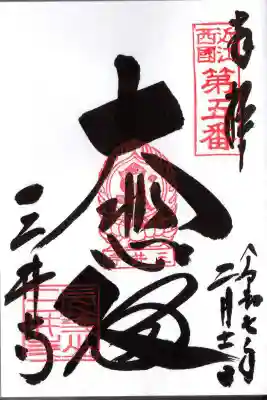 奉拝
近江
西國
第五番
令和七年
二月十一日
大悲殿
三井寺